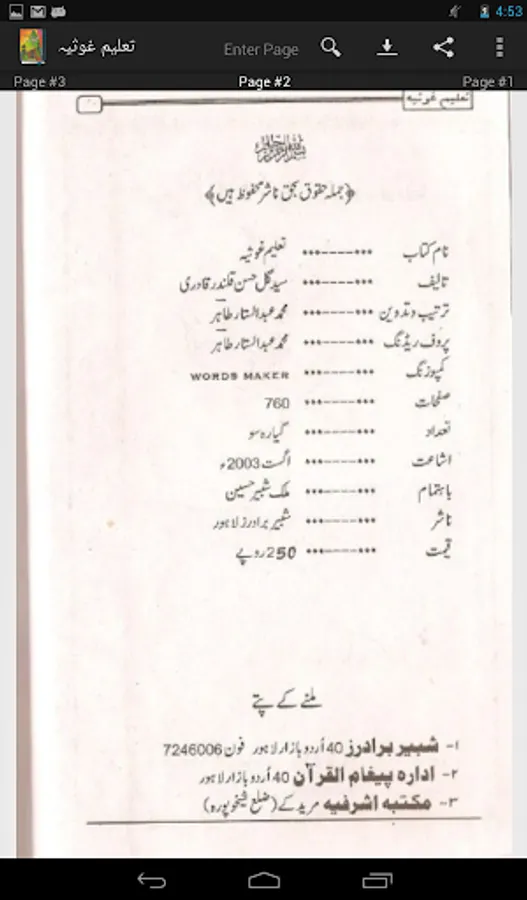 4:53
تعلیم غوثیہ Enter Page
Page #3 Page #2 Page #1
تعلیم غوثیہ
﴿جملہ حقوق بحق ناشر محفوظ ہیں﴾
نام کتاب •••-------••• تعلیم غوثیہ
تالیف •••-------••• سید گل حسن قلندر قادری
ترتیب و تدوین •••-------••• محمد عبدالستار طاہر
پروف ریڈنگ •••-------••• محمد عبدالستار طاہر
کمپوزنگ •••-------••• WORDS MAKER
صفحات •••-------••• 760
تعداد •••-------••• گیارہ سو
اشاعت •••-------••• اگست 2003ء
باہتمام •••-------••• ملک شبیر حسین
ناشر •••-------••• شبیر برادرز لاہور
قیمت •••-------••• 250 روپے
ملنے کے پتے
۱- شبیر برادرز 40 اُردو بازار لاہور فون 7246006
۲- ادارہ پیغام القرآن 40 اُردو بازار لاہور
۳- مکتبہ اشرفیہ مریدکے (ضلع شیخوپورہ)